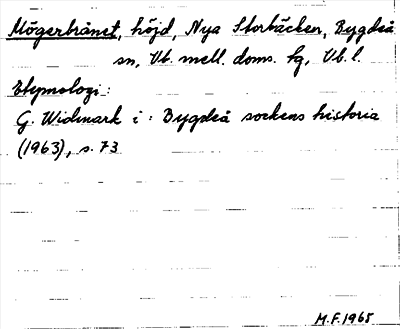 Mögerbränet, höjd, Nya Storbäcken, Bygdeå
sn, Vb. mell. doms. hg, Vb. l.
Etymologi:
G. Widmark i: Bygdeå sockens historia
(1963), s. 73
M.F. 1965